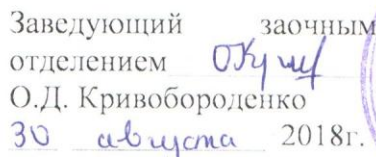 Заведующий заочным
отделением
О.Д. Кривобороденко
30 августа 2018г.